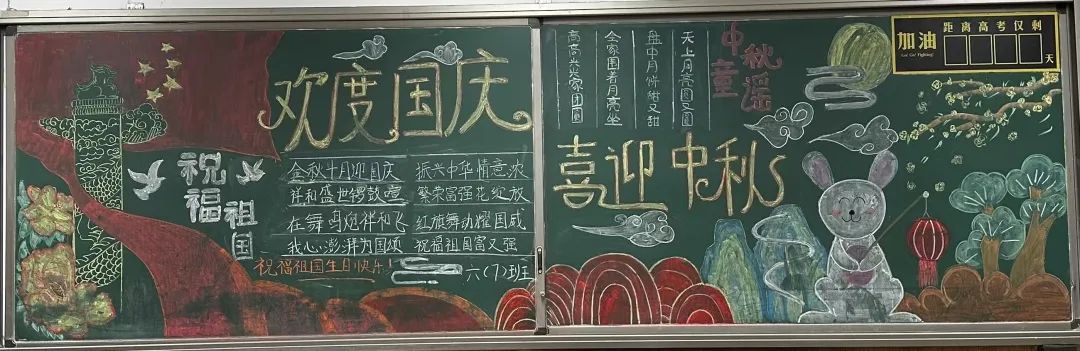 欢度国庆
祝福祖国
金秋十月迎国庆 振兴中华情意浓
祥和盛世锣鼓 繁荣富强花绽放
在舞鸟炮伴和飞 红旗舞动耀国威
我心澎湃为国颂 祝福祖国富又强
祝福祖国生日快乐!
六(7)班
中秋童谣
天上月亮圆又圆
盘中月饼甜又甜
全家围着月亮坐
高高兴兴家团圆
喜迎中秋
加油
Go! Go! Fighting!
距离高考仅剩
天